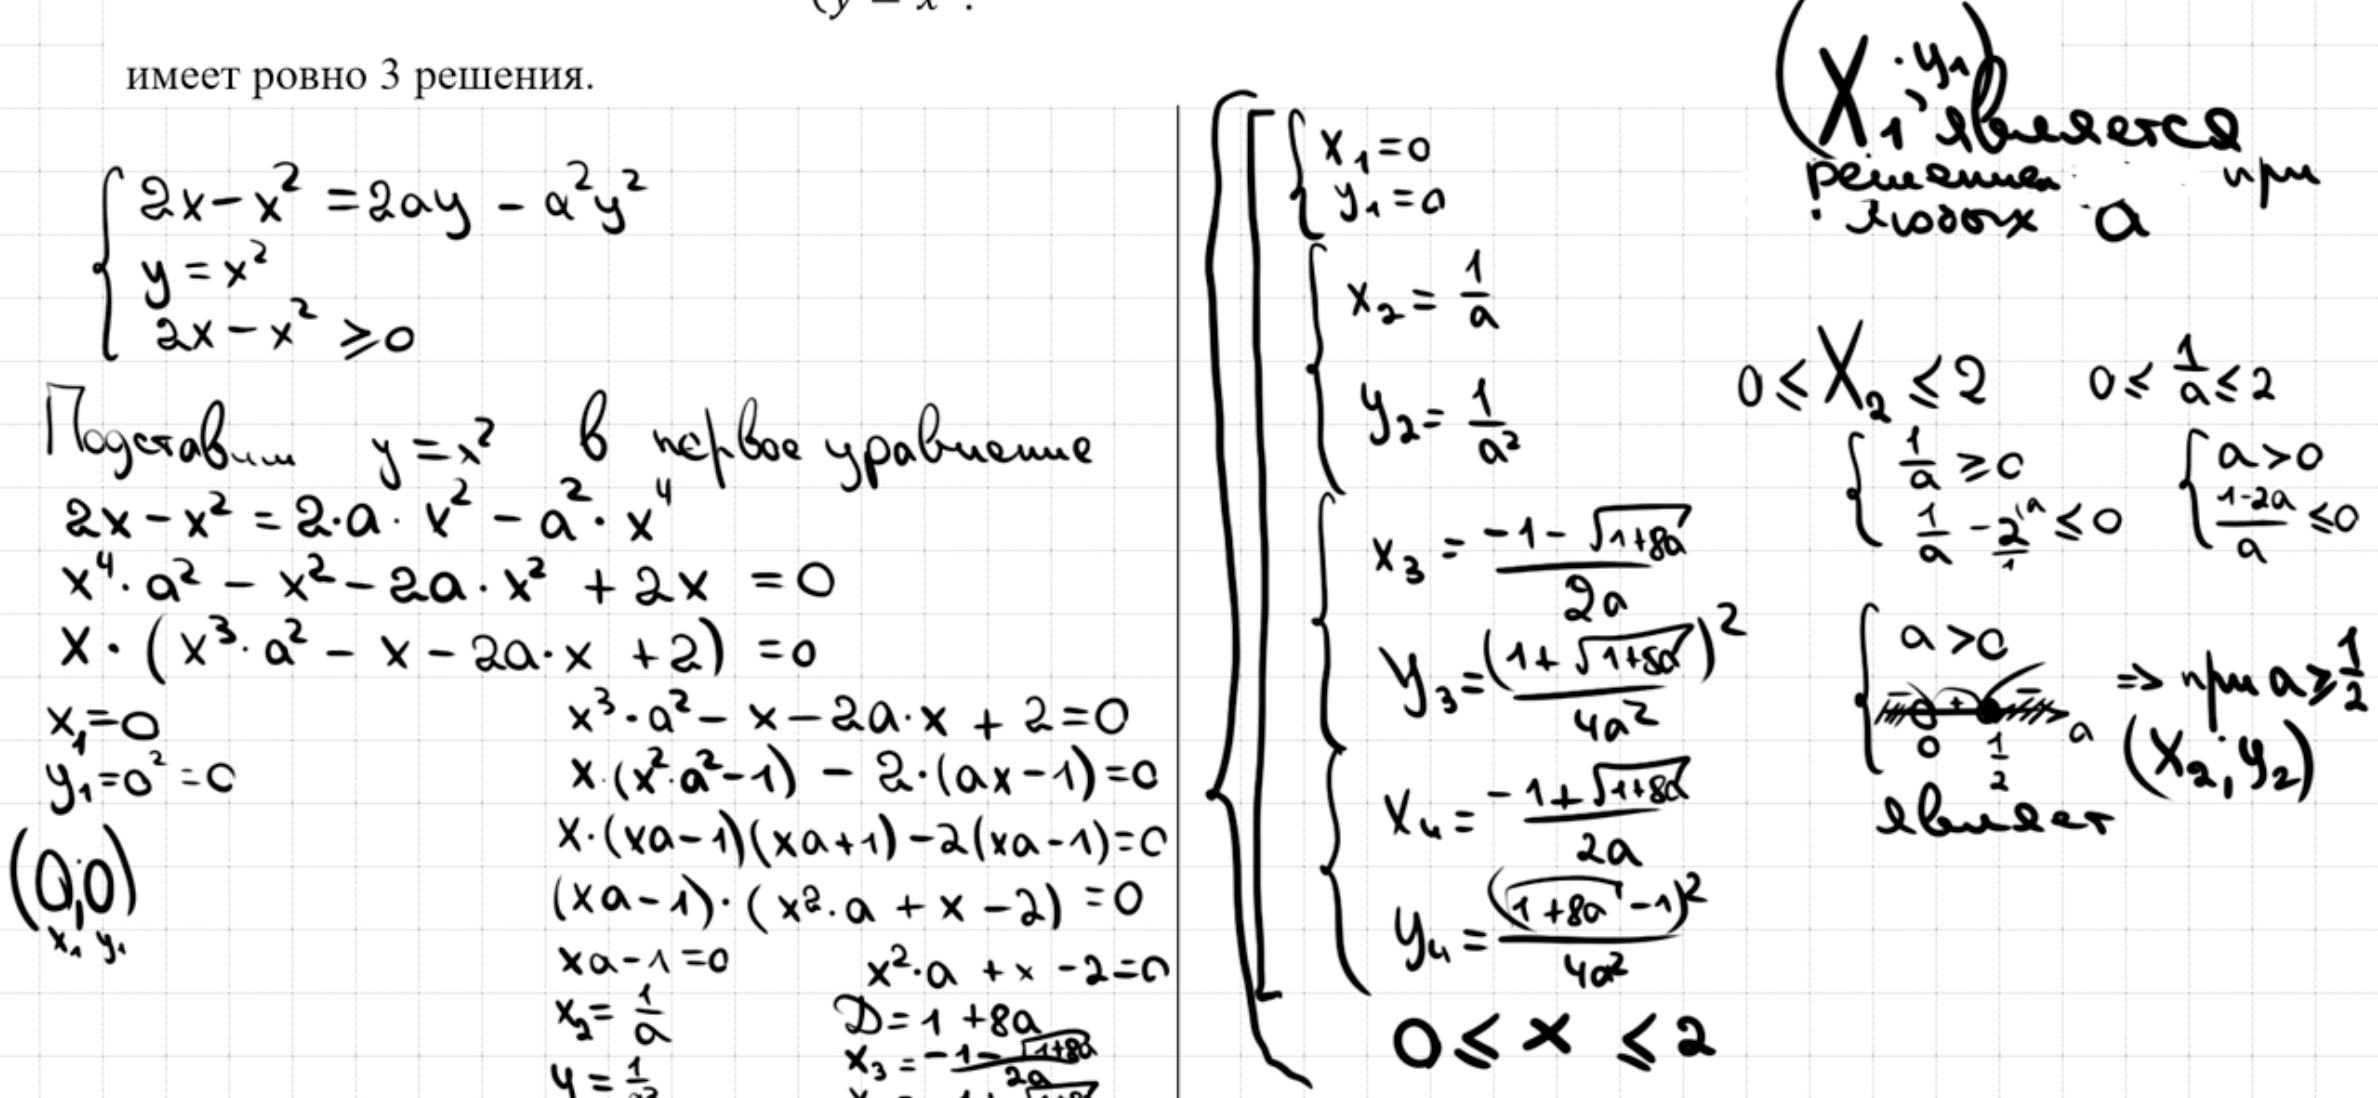 (y = x².
имеет ровно 3 решения.
2x - x² = 2ay - a²y²
y = x²
2x - x² ≥ 0
Подставим y = x² в первое уравнение
2x - x² = 2·a·x² - a²·x⁴
x⁴·a² - x² - 2a·x² + 2x = 0
x·(x³·a² - x - 2a·x + 2) = 0
x₁ = 0
y₁ = 0² = 0
(0;0)
x₁ y₁
x³·a² - x - 2a·x + 2 = 0
x·(x²·a² - 1) - 2·(ax - 1) = 0
x·(xa - 1)(xa + 1) - 2(xa - 1) = 0
(xa - 1)·(x²·a + x - 2) = 0
xa - 1 = 0
x₂ = 1/a
y = 1/a²
x²·a + x - 2 = 0
D = 1 + 8a
x₃ = (-1 - √(1+8a))/2a
x₁ = 0
y₁ = 0
x₂ = 1/a
y₂ = 1/a²
x₃ = (-1 - √(1+8a))/2a
y₃ = (1 + √(1+8a))²/4a²
x₄ = (-1 + √(1+8a))/2a
y₄ = (√(1+8a) - 1)²/4a²
0 ≤ x ≤ 2
(x₁; y₁) является
решением при
любых a
0 ≤ x₂ ≤ 2 0 ≤ 1/a ≤ 2
1/a ≥ 0
1/a - 2/1 ^(a ≤ 0
a > 0
(1-2a)/a ≤ 0
a > 0
- + - a
0 1/2
=> при a ≥ 1/2
(x₂; y₂)
являет